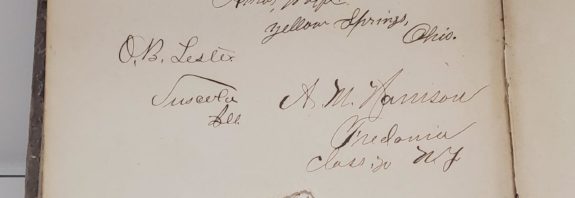 Yellow Springs,
Ohio.
O. B. Lester
Tuscola
Ill
A. M. Harrison
Fredonia
Class, 70 N Y